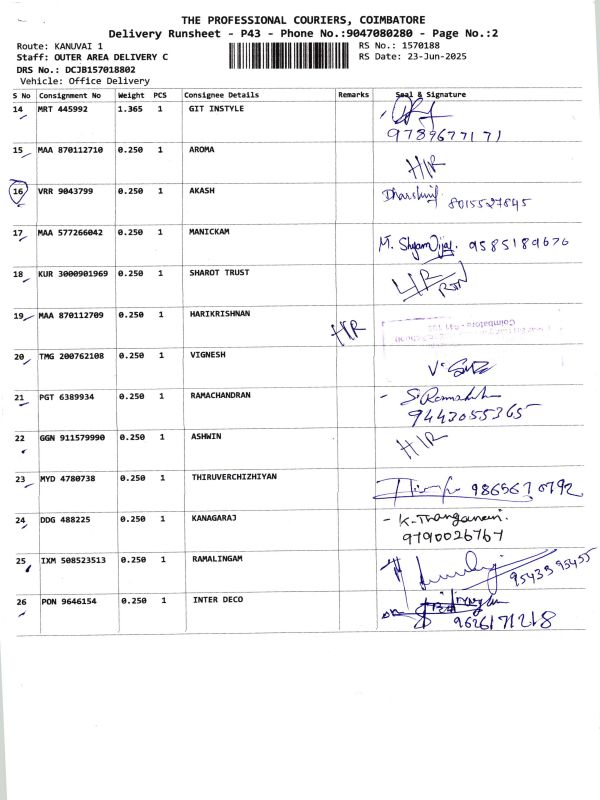 THE PROFESSIONAL COURIERS, COIMBATORE
Delivery Runsheet - P43 - Phone No.:9047080280 - Page No.:2
Route: KANUVAI 1
RS No.: 1570188
Staff: OUTER AREA DELIVERY C
RS Date: 23-Jun-2025
DRS No.: DCJB157018802
Vehicle: Office Delivery
S No Consignment No Weight PCS Consignee Details Remarks Seal & Signature
14 MRT 445992 1.365 1 GIT INSTYLE
9789677171
15 MAA 870112710 0.250 1 AROMA H/R
16 VRR 9043799 0.250 1 AKASH 8015527845
17 MAA 577266042 0.250 1 MANICKAM M. Shyam Vijay. 9585189676
18 KUR 3000901969 0.250 1 SHAROT TRUST
19 MAA 870112709 0.250 1 HARIKRISHNAN H/R
20 TMG 200762108 0.250 1 VIGNESH
21 PGT 6389934 0.250 1 RAMACHANDRAN
9443055365
22 GGN 911579990 0.250 1 ASHWIN H/R
23 MYD 4780738 0.250 1 THIRUVERCHIZHIYAN
24 DDG 488225 0.250 1 KANAGARAJ
9790026767
25 IXM 508523513 0.250 1 RAMALINGAM
26 PON 9646154 0.250 1 INTER DECO
9626171218